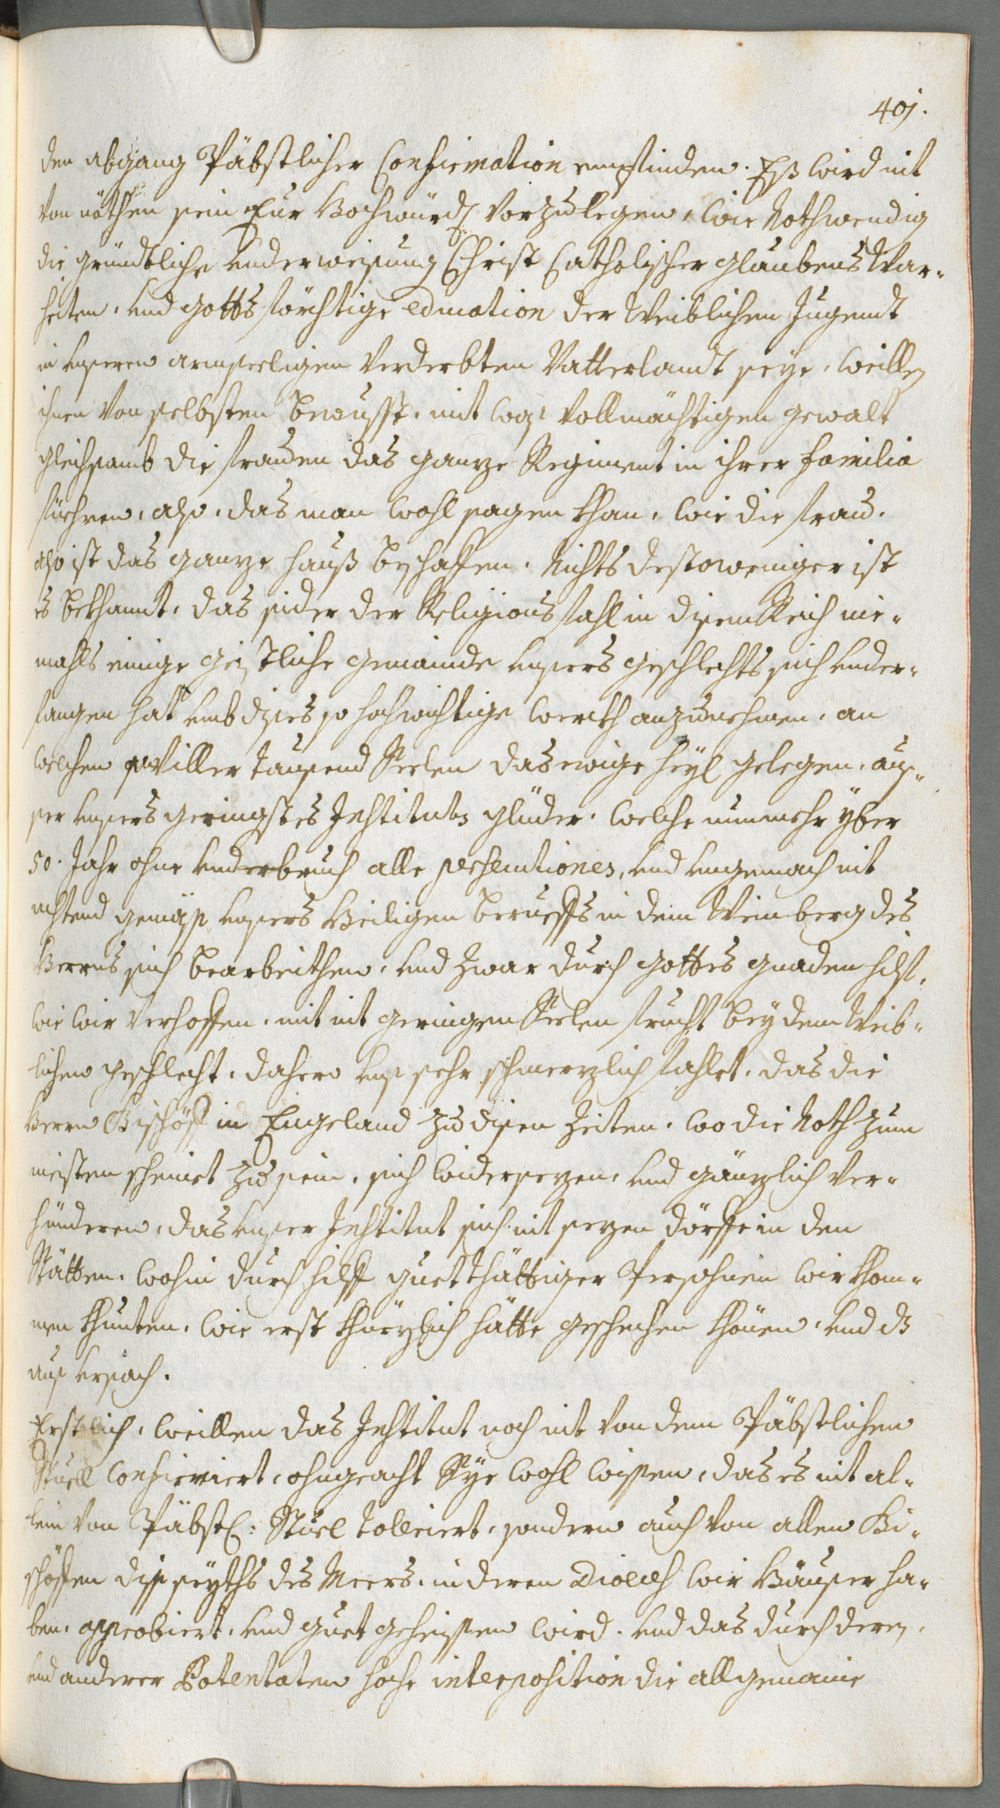 401.
den abgang Päbstlicher Confirmation empfinden. Eß wird nit
von nöthen sein Eur Hochwürd: vorzulegen, wie Nothwendig
die gründtliche underweisung Christ Catholischer glaubens War-
heiten, und gotts förchtige education der Weiblichen Jugendt
in unseren armseeligen verderbten Vatterlandt seye, weillen
ihnen von selbsten bewusst, mit was vollmächtigen gewalt
gleichsamb die frauen das ganze Regiment in ihrer familia
füehren, also, das man wohl sagen khan, wie die frau,
also ist das ganze hauß beschaffen. Nichts destoweniger ist
es bekhannt, das sider der Religions fahl in disem Reich nie-
mahls einige geistliche gemainde unsers geschlechts sich under-
fangen hat umb dises so hochwichtige werckh anzunehmen, an
welchen so viller tausend Seelen das ewige heyl gelegen, aus-
ser unsers geringstes Instituts glider, welche nunmehr yber
50. Jahr ohne underbruch alle persecutiones, und ungemach nit
achtend gemäß unsers Heiligen beruefs in dem Weinberg des
Herrns sich bearbeithen, und zwar durch gottes gnaden hilf,
wie wir verhoffen, mit nit geringen Seelen frucht bey dem Weib-
lichen geschlecht, dahero uns sehr schmerzlich fahlet, das die
Herrn Bischöff in Engeland zu disen Zeiten, wo die Noth zum
meisten scheinet zu sein, sich widersezen, und gänzlich ver-
hünderen, das unser Institut sich nit sezen dörffe in den
Stätten, wohin durch hilff guetthättiger Persohnen wir khom-
men khunten, wie erst khürzlich hätte geschehen khönen, und dß
aus ursach.
Erstlich, weillen das Institut noch nit von dem Päbstlichen
Stuell confirmiert, ohngeacht Sye wohl wissen, das es nit al-
lein von Päbstl: Stuel tolleriert, sondern auch von allen Bi-
schöffen diß seyths des Meers, in deren Dioeces wir Häuser ha-
ben, approbiert, und guet geheissen wird, und das durch deren,
und anderer Potentaten hoche interposition die allgemaine